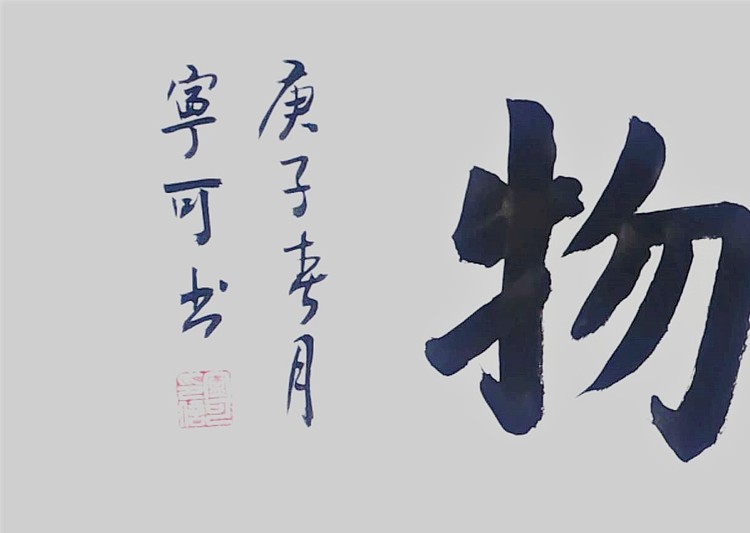 物
庚子春月
寧可书